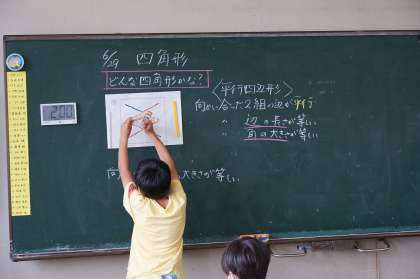 6/29 四角形
どんな四角形かな?
〈平行四辺形〉
向かい合った2組の辺が平行
〃 辺の長さが等しい。
〃 角の大きさが等しい。
大きさが等しい。